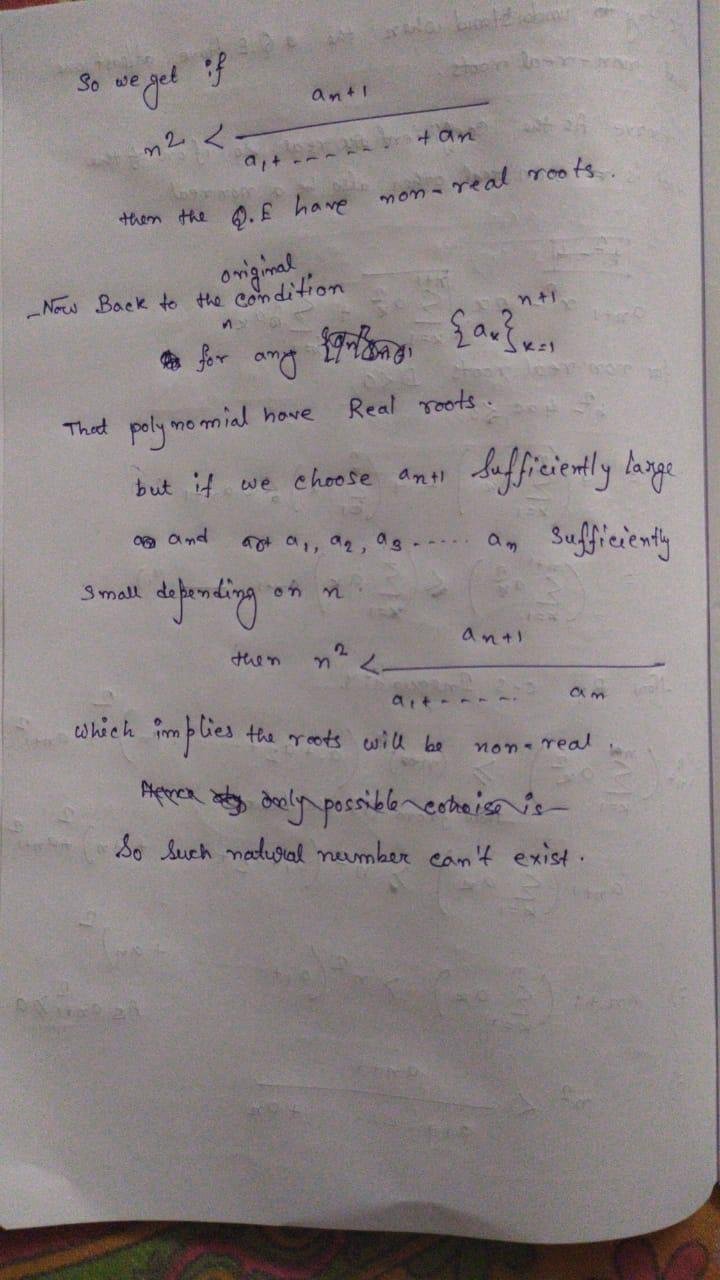 So we get if
a_{n+1}
n² < ———
a₁ + ------ + a_n
then the Q.E have non-real roots.
original
-Now Back to the condition
n
for any {a_k}_{k=1}^{n+1}
That polynomial have Real roots.
but if we choose a_{n+1} Sufficiently large
and a₁, a₂, a₃ ..... a_n Sufficiently
Small depending on n
a_{n+1}
then n² < ———
a₁ + ----- a_n
which implies the roots will be non-real.
Hence only possible is
So Such natural number can't exist.